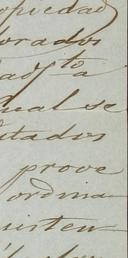 opiedad
orados
ad^to a
ual se
utados
prove
ordina
uisten